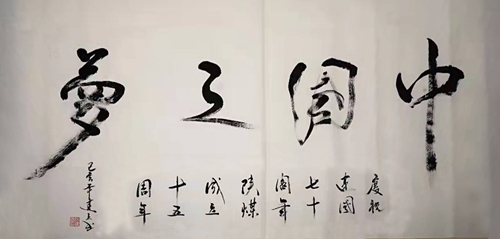 中國之夢
慶祝
建國
七十
周年
陝煤
成立
十五
周年
己亥年